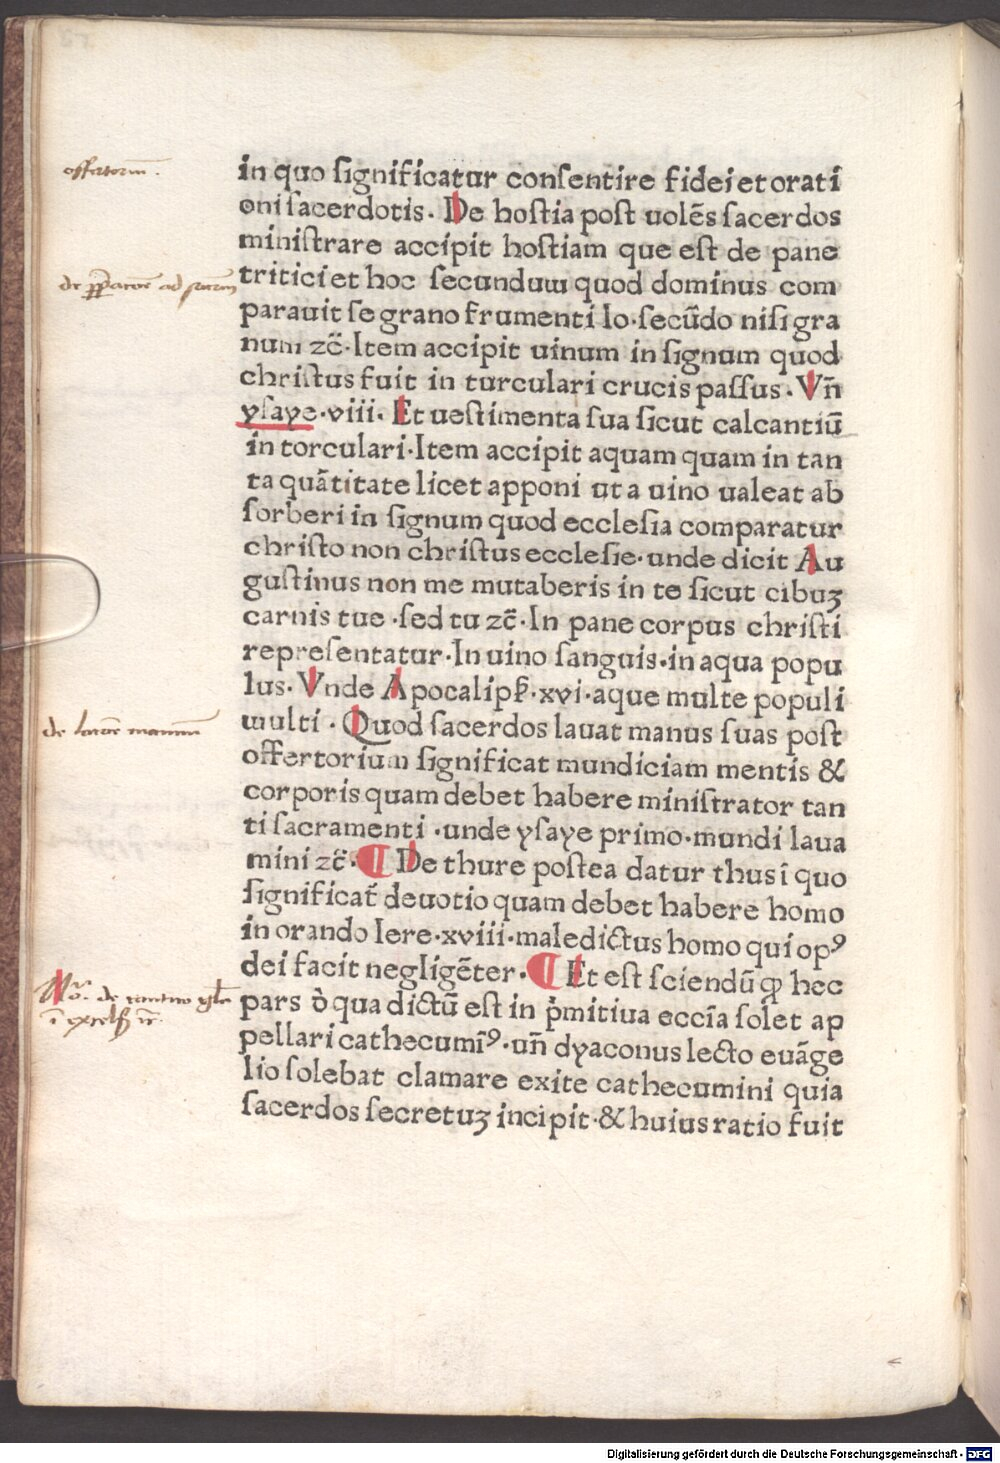 offertorium.
in quo significatur consentire fidei et orati
oni sacerdotis. De hostia post uolēs sacerdos
ministrare accipit hostiam que est de pane
de ad
tritici et hoc secundum quod dominus com
parauit se grano frumenti Io·secūdo nisi gra
num ⁊c̄·Item accipit uinum in signum quod
christus fuit in turculari crucis passus·Vn̄
ysaye·viii· Et uestimenta sua sicut calcantiū
in torculari·Item accipit aquam quam in tan
ta quātitate licet apponi ut a uino ualeat ab
sorberi in signum quod ecclesia comparatur
christo non christus ecclesie·unde dicit Au
gustinus non me mutaberis in te sicut cibuꝫ
carnis tue ·sed tu ⁊c̄·In pane corpus christi
representatur·In uino sanguis·in aqua popu
lus· Vnde Apocalipß·xvi·aque multe populi
de manuum
multi · Quod sacerdos lauat manus suas post
offertorium significat mundiciam mentis &
corporis quam debet habere ministrator tan
ti sacramenti ·unde ysaye primo·mundi laua
mini ⁊c̄·¶ De thure postea datur thus ī quo
significat᷑ deuotio quam debet habere homo
in orando Iere·xviii·maledictus homo qui opꝰ
dei facit negligēter·¶ Et est sciendū ꝙ hec
de
pars ò qua dictū est in p̍mitiua eccīa solet ap
pellari cathecumīꝰ·un̄ dyaconus lecto euāge
lio solebat clamare exite cathecumini quia
sacerdos secretuꝫ incipit·& huius ratio fuit
Digitalisierung gefördert durch die Deutsche Forschungsgemeinschaft - DFG